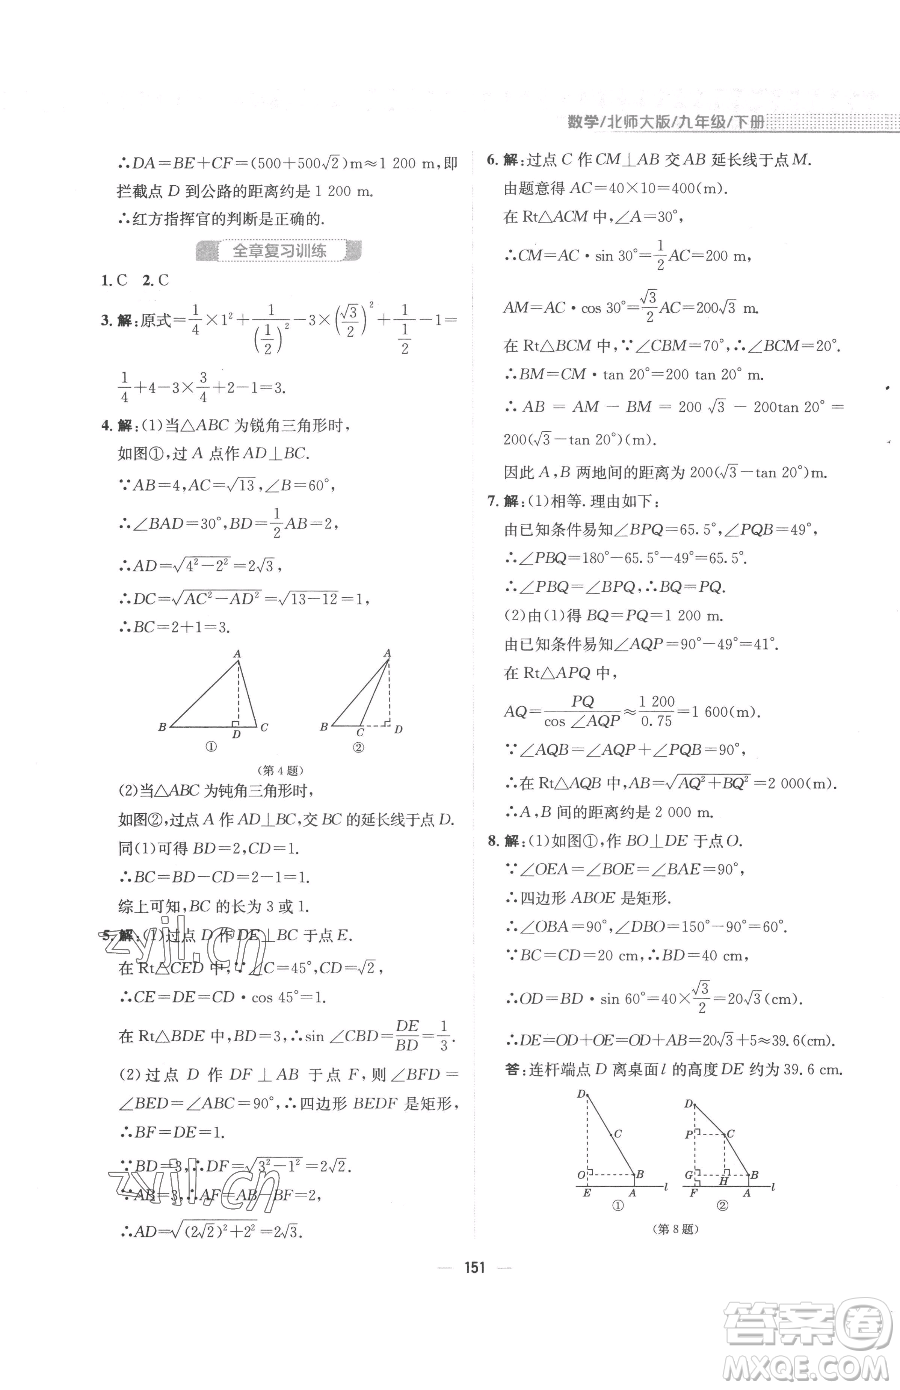 数学/北师大版/九年级/下册
∴DA=BE+CF=(500+500√2)m≈1 200 m,即
拦截点 D 到公路的距离约是 1 200 m.
∴红方指挥官的判断是正确的.
全章复习训练
1. C  2. C
3. 解:原式=1/4×1²+1/(1/2)²-3×(√3/2)²+1/(1/2)-1=
1/4+4-3×3/4+2-1=3.
4. 解:(1)当△ABC 为锐角三角形时,
如图①,过 A 点作 AD⊥BC.
∵AB=4,AC=√13,∠B=60°,
∴∠BAD=30°,BD=1/2AB=2,
∴AD=√(4²-2²)=2√3,
∴DC=√(AC²-AD²)=√(13-12)=1,
∴BC=2+1=3.
A
B D C
①
A
B C D
②
(第 4 题)
(2)当△ABC 为钝角三角形时,
如图②,过点 A 作 AD⊥BC,交 BC 的延长线于点 D.
同(1)可得 BD=2,CD=1.
∴BC=BD-CD=2-1=1.
综上可知,BC 的长为 3 或 1.
5. 解:(1)过点 D 作 DE⊥BC 于点 E.
在 Rt△CED 中,∵∠C=45°,CD=√2,
∴CE=DE=CD·cos 45°=1.
在 Rt△BDE 中,BD=3,∴sin ∠CBD=DE/BD=1/3.
(2)过点 D 作 DF⊥AB 于点 F,则∠BFD=
∠BED=∠ABC=90°,∴四边形 BEDF 是矩形,
∴BF=DE=1.
∵BD=3,∴DF=√(3²-1²)=2√2.
∵AB=3,∴AF=AB-BF=2,
∴AD=√((2√2)²+2²)=2√3.
6. 解:过点 C 作 CM⊥AB 交 AB 延长线于点 M.
由题意得 AC=40×10=400(m).
在 Rt△ACM 中,∠A=30°,
∴CM=AC·sin 30°=1/2AC=200 m,
AM=AC·cos 30°=√3/2AC=200√3 m.
在 Rt△BCM 中,∵∠CBM=70°,∴∠BCM=20°.
∴BM=CM·tan 20°=200tan 20° m.
∴AB=AM-BM=200√3-200tan 20°=
200(√3-tan 20°)(m).
因此 A,B 两地间的距离为 200(√3-tan 20°)m.
7. 解:(1)相等.理由如下:
由已知条件易知∠BPQ=65.5°,∠PQB=49°,
∴∠PBQ=180°-65.5°-49°=65.5°,
∴∠PBQ=∠BPQ,∴BQ=PQ.
(2)由(1)得 BQ=PQ=1 200 m.
由已知条件易知∠AQP=90°-49°=41°.
在 Rt△APQ 中,
AQ=PQ/cos ∠AQP≈1 200/0.75=1 600(m).
∵∠AQB=∠AQP+∠PQB=90°,
∴在 Rt△AQB 中,AB=√(AQ²+BQ²)=2 000(m).
∴A,B 间的距离约是 2 000 m.
8. 解:(1)如图①,作 BO⊥DE 于点O.
∵∠OEA=∠BOE=∠BAE=90°,
∴四边形 ABOE 是矩形.
∴∠OBA=90°,∠DBO=150°-90°=60°.
∵BD=BC+CD=40 cm,
∴OD=BD·sin 60°=40×√3/2=20√3(cm).
∴DE=OD+OE=OD+AB=20√3+5≈39.6(cm).
答:连杆端点 D 离桌面 l 的高度 DE 约为 39.6 cm.
D
C
O B
E A l
①
D
P C
G H B
F A l
②
(第 8 题)
151
zyjl.cn
zyjl.cn
答案圈
MXQE.COM